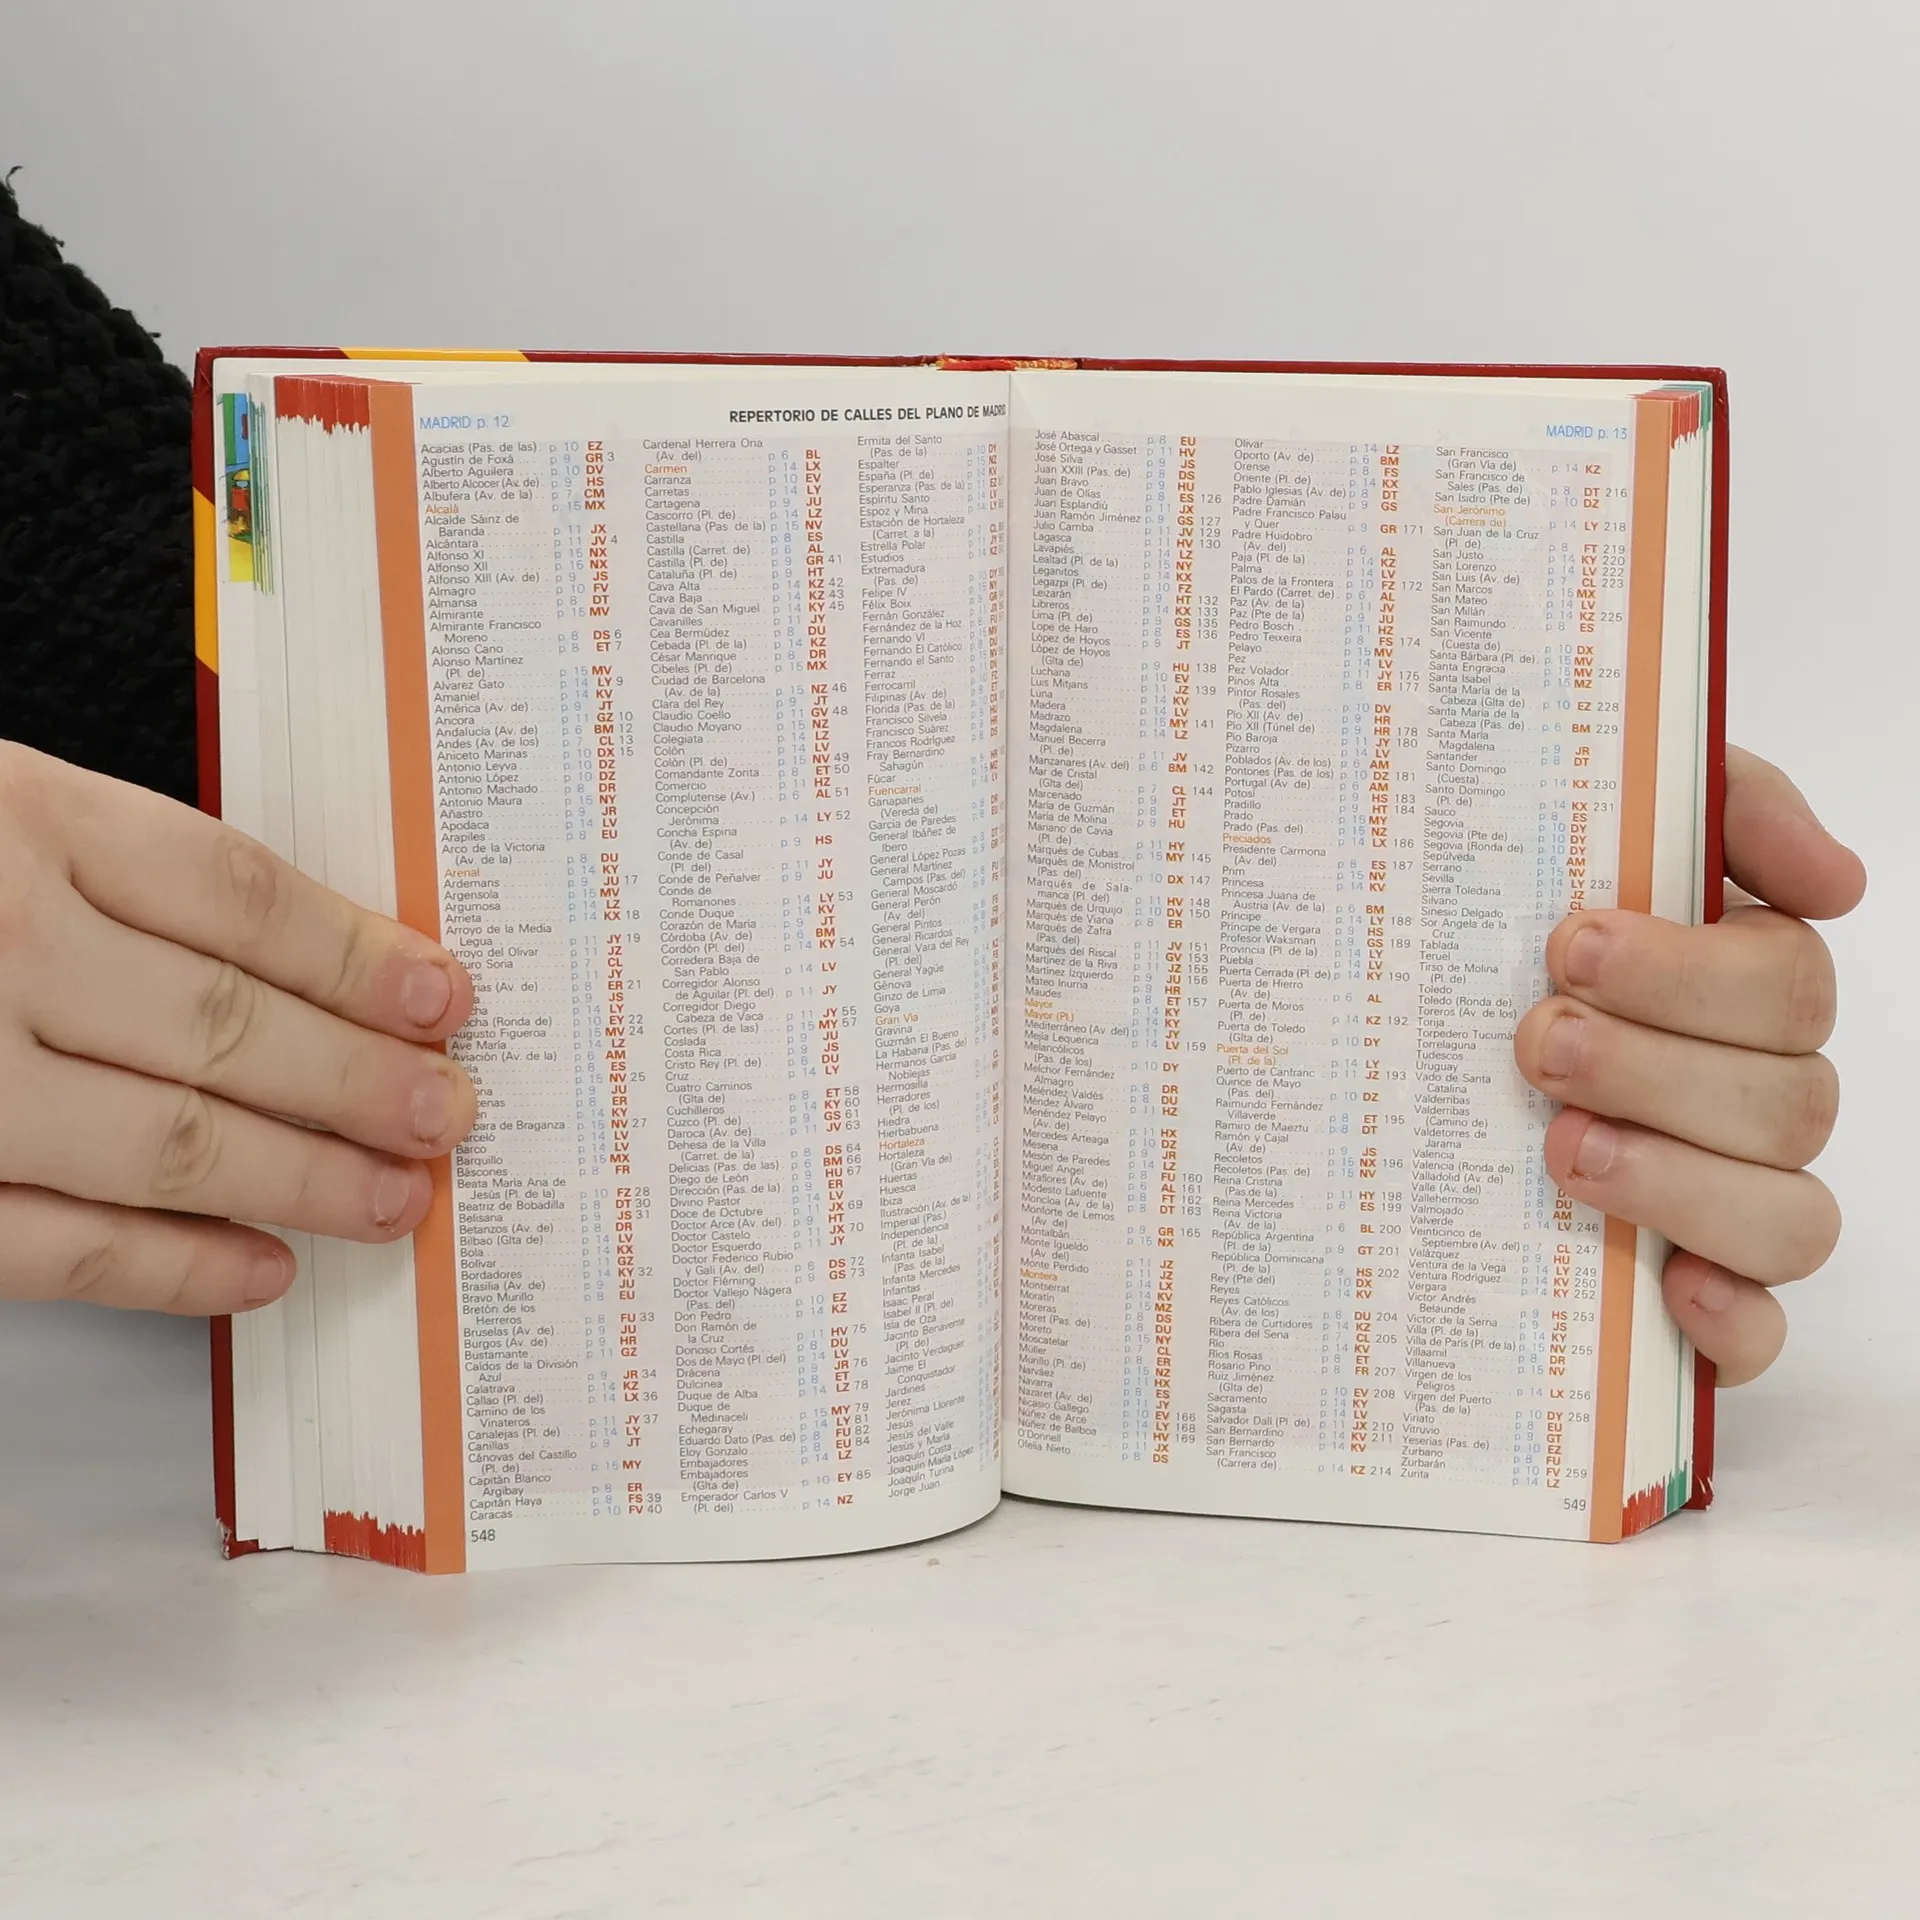 MADRID p. 12
REPERTORIO DE CALLES DEL PLANO DE MADRID
Acacias (Pas. de las) p 10 EZ
Agustín de Foxá p 9 GR 3
Alberto Aguilera p 10 DV
Alberto Alcocer (Av. de) p 9 HS
Albufera (Av. de la) p 7 CM
Alcalá p 15 MX
Alcalde Sáinz de
Baranda p 11 JX
Alcántara p 11 JV 4
Alfonso XI p 15 NX
Alfonso XII p 15 NX
Alfonso XIII (Av. de) p 9 JS
Almagro p 10 FV
Almansa p 8 DT
Almirante p 15 MV
Almirante Francisco
Moreno p 8 DS 6
Alonso Cano p 8 ET 7
Alonso Martínez
(Pl. de) p 15 MV
Alvarez Gato p 14 LY 9
Amaniel p 14 KV
América (Av. de) p 9 JT
Ancora p 11 GZ 10
Andalucía (Av. de) p 6 BM 12
Andes (Av. de los) p 7 CL 13
Aniceto Marinas p 10 DX 15
Antonio Leyva p 10 DZ
Antonio López p 10 DZ
Antonio Machado p 8 DR
Antonio Maura p 15 NY
Añastro p 9 JR
Apodaca p 14 LV
Arapiles p 8 EU
Arco de la Victoria
(Av. de la) p 8 DU
Arenal p 14 KY
Ardemans p 9 JU 17
Argensola p 15 MV
Argumosa p 14 LZ
Arrieta p 14 KX 18
Arroyo de la Media
Legua p 11 JY 19
Arroyo del Olivar p 11 JZ
Bárbara de Braganza p 15 NV 27
Barco p 14 LV
Barquillo p 15 MX
Báscones p 8 FR
Beata María Ana de
Jesús (Pl. de la) p 10 FZ 28
Beatriz de Bobadilla p 8 DT 30
Belisana p 9 JS 31
Betanzos (Av. de) p 8 DR
Bilbao (Glta de) p 14 LV
Bola p 14 KX
Bolívar p 11 GZ
Bordadores p 14 KY 32
Brasilia (Av. de) p 9 JU
Bravo Murillo p 8 EU
Bretón de los
Herreros p 8 FU 33
Bruselas (Av. de) p 9 JU
Burgos (Av. de) p 9 HR
Bustamante p 11 GZ
Caídos de la División
Azul p 9 JR 34
Calatrava p 14 KZ
Callao (Pl. del) p 14 LX 36
Camino de los
Vinateros p 11 JY 37
Canalejas (Pl. de) p 14 LY
Canillas p 9 JT
Cánovas del Castillo
(Pl. de) p 15 MY
Capitán Blanco
Argibay p 8 ER
Capitán Haya p 8 FS 39
Caracas p 10 FV 40
Cardenal Herrera Oria
(Av. del) p 6 BL
Carmen p 14 LX
Carranza p 10 EV
Carretas p 14 LY
Cartagena p 9 JU
Cascorro (Pl. de) p 14 LZ
Castellana (Pas. de la) p 15 NV
Castilla p 8 ES
Castilla (Carret. de) p 6 AL
Castilla (Pl. de) p 9 GR 41
Cataluña (Pl. de) p 9 HT
Cava Alta p 14 KZ 42
Cava Baja p 14 KZ 43
Cava de San Miguel p 14 KY 45
Cavanilles p 11 JY
Cea Bermúdez p 8 DU
Cebada (Pl. de la) p 14 KZ
César Manrique p 8 DR
Cibeles (Pl. de) p 15 MX
Ciudad de Barcelona
(Av. de la) p 15 NZ 46
Clara del Rey p 9 JT
Claudio Coello p 11 GV 48
Claudio Moyano p 15 NZ
Colegiata p 14 LZ
Colón p 14 LV
Colón (Pl. de) p 15 NV 49
Comandante Zorita p 8 ET 50
Comercio p 11 HZ
Complutense (Av.) p 6 AL 51
Concepción
Jerónima p 14 LY 52
Concha Espina
(Av. de) p 9 HS
Conde de Casal
(Pl. del) p 11 JY
Conde de Peñalver p 9 JU
Conde de
Romanones p 14 LY 53
Conde Duque p 14 KV
Corazón de María p 9 JT
Córdoba (Av. de) p 6 BM
Cordón (Pl. del) p 14 KY 54
Corredera Baja de
San Pablo p 14 LV
Corregidor Alonso
de Aguilar (Pl. del) p 11 JY
Corregidor Diego
Cabeza de Vaca p 11 JY 55
Cortes (Pl. de las) p 15 MY 57
Coslada p 9 JU
Costa Rica p 9 JS
Cristo Rey (Pl. de) p 8 DU
Cruz p 14 LY
Cuatro Caminos
(Glta de) p 8 ET 58
Cuchilleros p 14 KY 60
Cuzco (Pl. de) p 9 GS 61
Daroca (Av. de) p 11 JV 63
Dehesa de la Villa
(Carret. de la) p 8 DS 64
Delicias (Pas. de las) p 6 BM 66
Diego de León p 9 HU 67
Dirección (Pas. de la) p 9 ER
Divino Pastor p 14 LV
Doce de Octubre p 11 JX 69
Doctor Arce (Av. del) p 9 HT
Doctor Castelo p 11 JX 70
Doctor Esquerdo p 11 JY
Doctor Federico Rubio
y Gali (Av. del) p 8 DS 72
Doctor Fléming p 9 GS 73
Doctor Vallejo Nágera
(Pas. del) p 10 EZ
Don Pedro p 14 KZ
Don Ramón de
la Cruz p 11 HV 75
Donoso Cortés p 8 DU
Dos de Mayo (Pl. del) p 14 LV
Drácena p 9 JR 76
Dulcinea p 8 ET
Duque de Alba p 14 LZ 78
Duque de
Medinaceli p 15 MY 79
Echegaray p 14 LY 81
Eduardo Dato (Pas. de) p 8 FU 82
Eloy Gonzalo p 8 EU 84
Embajadores p 14 LZ
Embajadores
(Glta de) p 10 EY 85
Emperador Carlos V
(Pl. del) p 14 NZ
Ermita del Santo
(Pas. de la)
Espalter
España (Pl. de)
Esperanza (Pas. de la)
Espíritu Santo
Espoz y Mina
Estación de Hortaleza
(Carret. a la)
Estrella Polar
Estudios
Extremadura
(Pas. de)
Felipe IV
Félix Boix
Fernán González
Fernández de la Hoz
Fernando VI
Fernando El Católico
Fernando el Santo
Ferraz
Ferrocarril
Filipinas (Av. de)
Florida (Pas. de la)
Francisco Silvela
Francisco Suárez
Francos Rodríguez
Fray Bernardino
Sahagún
Fúcar
Fuencarral
Ganapanes
(Vereda de)
García de Paredes
General Ibáñez de
Ibero
General López Pozas
General Martínez
Campos (Pas. del)
General Moscardó
General Perón
(Av. del)
General Pintos
General Ricardos
General Vara del Rey
(Pl. del)
General Yagüe
Génova
Ginzo de Limia
Goya
Gran Vía
Gravina
Guzmán El Bueno
La Habana (Pas. de)
Hermanos García
Noblejas
Hermosilla
Herradores
(Pl. de los)
Hiedra
Hierbabuena
Hortaleza
Hortaleza
(Gran Vía de)
Huertas
Huesca
Ibiza
Ilustración (Av. de la)
Imperial (Pas.)
Independencia
(Pl. de la)
Infanta Isabel
(Pas. de la)
Infanta Mercedes
Infantas
Isaac Peral
Isabel II (Pl. de)
Isla de Oza
Jacinto Benavente
(Pl. de)
Jacinto Verdaguer
Jaime El
Conquistador
Jardines
Jerez
Jerónima Llorente
Jesús
Jesús del Valle
Jesús y María
Joaquín Costa
Joaquín María López
Joaquín Turina
Jorge Juan
548
MADRID p. 13
José Abascal p 8 EU
José Ortega y Gasset p 11 HV
José Silva p 9 JS
Juan XXIII (Pas. de) p 8 DS
Juan Bravo p 9 HU
Juan de Olías p 8 ES 126
Juan Esplandiú p 11 JX
Juan Ramón Jiménez p 9 GS 127
Julio Camba p 11 JV 129
Lagasca p 11 HV 130
Lavapiés p 14 LZ
Lealtad (Pl. de la) p 15 NY
Leganitos p 14 KX
Legazpi (Pl. de) p 10 FZ
Leizarán p 9 HT 132
Libreros p 14 KX 133
Lima (Pl. de) p 9 GS 135
Lope de Haro p 8 ES 136
López de Hoyos p 9 JT
López de Hoyos
(Glta de) p 9 HU 138
Luchana p 10 EV
Luis Mitjans p 11 JZ 139
Luna p 14 KV
Madera p 14 LV
Madrazo p 15 MY 141
Magdalena p 14 LZ
Manuel Becerra
(Pl. de) p 11 JV
Manzanares (Av. del) p 6 BM 142
Mar de Cristal
(Glta de) p 7 CL 144
Marcenado p 9 JT
María de Guzmán p 8 ET
María de Molina p 9 HU
Mariano de Cavia
(Pl. de) p 11 HY
Marqués de Cubas p 15 MY 145
Marqués de Monistrol
(Pas. del) p 10 DX 147
Marqués de Sala-
manca (Pl. del) p 11 HV 148
Marqués de Urquijo p 10 DV 150
Marqués de Viana p 8 ER
Marqués de Zafra
(Pas. del) p 11 JV 151
Marqués del Riscal p 11 GV 153
Martínez de la Riva p 11 JZ 155
Martínez Izquierdo p 9 JU 156
Mateo Inurria p 9 HR
Maudes p 8 ET 157
Mayor p 14 KY
Mayor (Pl.) p 14 KY
Mediterráneo (Av. del) p 11 JY
Mejía Lequerica p 14 LV 159
Melancólicos
(Pas. de los) p 10 DY
Melchor Fernández
Almagro p 8 DR
Meléndez Valdés p 8 DU
Méndez Álvaro p 11 HZ
Menéndez Pelayo
(Av. de) p 11 HX
Mercedes Arteaga p 10 DZ
Mesena p 9 JR
Mesón de Paredes p 14 LZ
Miguel Angel p 8 FU 160
Miraflores (Av. de) p 6 AL 161
Modesto Lafuente p 8 FT 162
Moncloa (Av. de la) p 8 DT 163
Monforte de Lemos
(Av. de) p 9 GR 165
Montalbán p 15 NX
Monte Igueldo
(Av. de) p 11 JZ
Monte Perdido p 11 JZ
Montera p 14 LX
Montserrat p 14 KV
Moratín p 15 MZ
Moreras p 8 DS
Moret (Pas. de) p 8 DU
Moreto p 15 NY
Moscatelar p 7 CL
Müller p 8 ER
Murillo (Pl. de) p 15 NZ
Narváez p 11 HX
Navarra p 8 ES
Nazaret (Av. de) p 11 JY
Nicasio Gallego p 10 EV 166
Núñez de Arce p 14 LY 168
Núñez de Balboa p 11 HV 169
O'Donnell p 11 JX
Ofelia Nieto p 8 DS
Olivar p 14 LZ
Oporto (Av. de) p 6 BM
Orense p 8 FS
Oriente (Pl. de) p 14 KX
Pablo Iglesias (Av. de) p 8 DT
Padre Damián p 9 GS
Padre Francisco Palau
y Quer p 9 GR 171
Padre Huidobro
(Av. del) p 6 AL
Paja (Pl. de la) p 14 KZ
Palma p 14 LV
Palos de la Frontera p 10 FZ 172
El Pardo (Carret. de) p 6 AL
Paz (Av. de la) p 11 JV
Paz (Pte de la) p 9 JU
Pedro Bosch p 11 HZ
Pedro Teixeira p 8 FS 174
Pelayo p 15 MV
Pez p 14 LV
Pez Volador p 11 JY 175
Pinos Alta p 8 ER 177
Pintor Rosales
(Pas. del) p 10 DV
Pío XII (Av. de) p 9 HR
Pío XII (Túnel de) p 9 HR 178
Pío Baroja p 11 JY 180
Pizarro p 14 LV
Poblados (Av. de los) p 6 AM
Pontones (Pas. de los) p 10 DZ 181
Portugal (Av. de) p 6 AM
Potosí p 9 HS 183
Pradillo p 9 HT 184
Prado p 15 MY
Prado (Pas. del) p 15 NZ
Preciados p 14 LX 186
Presidente Carmona
(Av. del) p 8 ES 187
Prim p 15 NV
Princesa p 14 KV
Princesa Juana de
Austria (Av. de la) p 6 BM
Príncipe p 14 LY 188
Príncipe de Vergara p 9 HS
Profesor Waksman p 9 GS 189
Provincia (Pl. de la) p 14 LY
Puebla p 14 LV
Puerta Cerrada (Pl. de) p 14 KY 190
Puerta de Hierro
(Av. de) p 6 AL
Puerta de Moros
(Pl. de) p 14 KZ 192
Puerta de Toledo
(Glta de) p 10 DY
Puerta del Sol
(Pl. de la) p 14 LY
Puerto de Canfranc p 11 JZ 193
Quince de Mayo
(Pas. del) p 10 DZ
Raimundo Fernández
Villaverde p 8 ET 195
Ramiro de Maeztu p 8 DT
Ramón y Cajal
(Av. de) p 9 JS
Recoletos p 15 NX 196
Recoletos (Pas. de) p 15 NV
Reina Cristina
(Pas. de la) p 11 HY 198
Reina Mercedes p 8 ES 199
Reina Victoria
(Av. de la) p 6 BL 200
República Argentina
(Pl. de la) p 9 GT 201
República Dominicana
(Pl. de la) p 9 HS 202
Rey (Pte del) p 10 DX
Reyes p 14 KV
Reyes Católicos
(Av. de los) p 8 DU 204
Ribera de Curtidores p 14 KZ
Ribera del Sena p 7 CL 205
Río p 14 KV
Ríos Rosas p 8 ET
Rosario Pino p 8 FR 207
Ruiz Jiménez
(Glta de) p 10 EV 208
Sacramento p 14 KY
Sagasta p 14 LV
Salvador Dalí (Pl. de) p 11 JX 210
San Bernardino p 14 KV 211
San Bernardo p 14 KV
San Francisco
(Carrera de) p 14 KZ 214
San Francisco
(Gran Vía de) p 14 KZ
San Francisco de
Sales (Pas. de) p 8 DT 216
San Isidro (Pte de) p 10 DZ
San Jerónimo
(Carrera de) p 14 LY 218
San Juan de la Cruz
(Pl. de) p 8 FT 219
San Justo p 14 KY 220
San Lorenzo p 14 LV 222
San Luis (Av. de) p 7 CL 223
San Marcos p 15 MX
San Mateo p 14 LV
San Millán p 14 KZ 225
San Raimundo p 8 ES
San Vicente
(Cuesta de) p 10 DX
Santa Bárbara (Pl. de) p 15 MV
Santa Engracia p 15 MV 226
Santa Isabel p 15 MZ
Santa María de la
Cabeza (Glta de) p 10 EZ 228
Santa María de la
Cabeza (Pas. de) p 6 BM 229
Santa María
Magdalena p 9 JR
Santander p 8 DT
Santo Domingo
(Cuesta) p 14 KX 230
Santo Domingo
(Pl. de) p 14 KX 231
Sauco p 8 ES
Segovia p 10 DY
Segovia (Pte de) p 10 DY
Segovia (Ronda de) p 10 DY
Sepúlveda p 6 AM
Serrano p 15 NV
Sevilla p 14 LY 232
Sierra Toledana p 11 JZ
Silvano p 7 CL
Sinesio Delgado p 8
Sor Angela de la
Cruz
Tablada
Teruel
Tirso de Molina
(Pl. de)
Toledo
Toledo (Ronda de)
Toreros (Av. de los)
Torija
Torpedero Tucumán
Torrelaguna
Tudescos
Uruguay
Vado de Santa
Catalina
Valderribas
Valderribas
(Camino de)
Valdetorres de
Jarama
Valencia
Valencia (Ronda de)
Valladolid (Av. de)
Valle (Av. del)
Vallehermoso p 8 DU
Valmojado p 6 AM
Valverde p 14 LV 246
Veinticinco de
Septiembre (Av. del) p 7 CL 247
Velázquez p 9 HU
Ventura de la Vega p 14 LY 249
Ventura Rodríguez p 14 KV 250
Vergara p 14 KY 252
Víctor Andrés
Belaunde p 9 HS 253
Víctor de la Serna p 9 JS
Villa (Pl. de la) p 14 KY
Villa de París (Pl. de la) p 15 NV 255
Villaamil p 8 DR
Villanueva p 15 NV
Virgen de los
Peligros p 14 LX 256
Virgen del Puerto
(Pas. de la) p 10 DY 258
Viriato p 8 EU
Vitruvio p 9 GT
Yeserías (Pas. de) p 10 EZ
Zurbano p 8 FU
Zurbarán p 10 FV 259
Zurita p 14 LZ
549